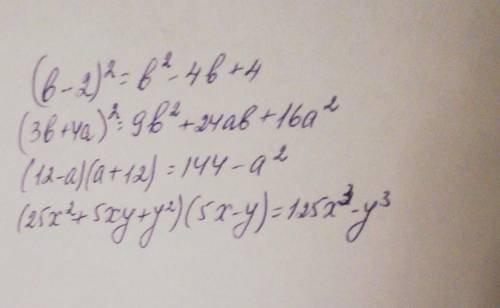 (b-2)² = b² - 4b + 4
(3b+4a)² = 9b² + 24ab + 16a²
(12-a)(a+12) = 144 - a²
(25x² + 5xy + y²)(5x-y) = 125x³ - y³